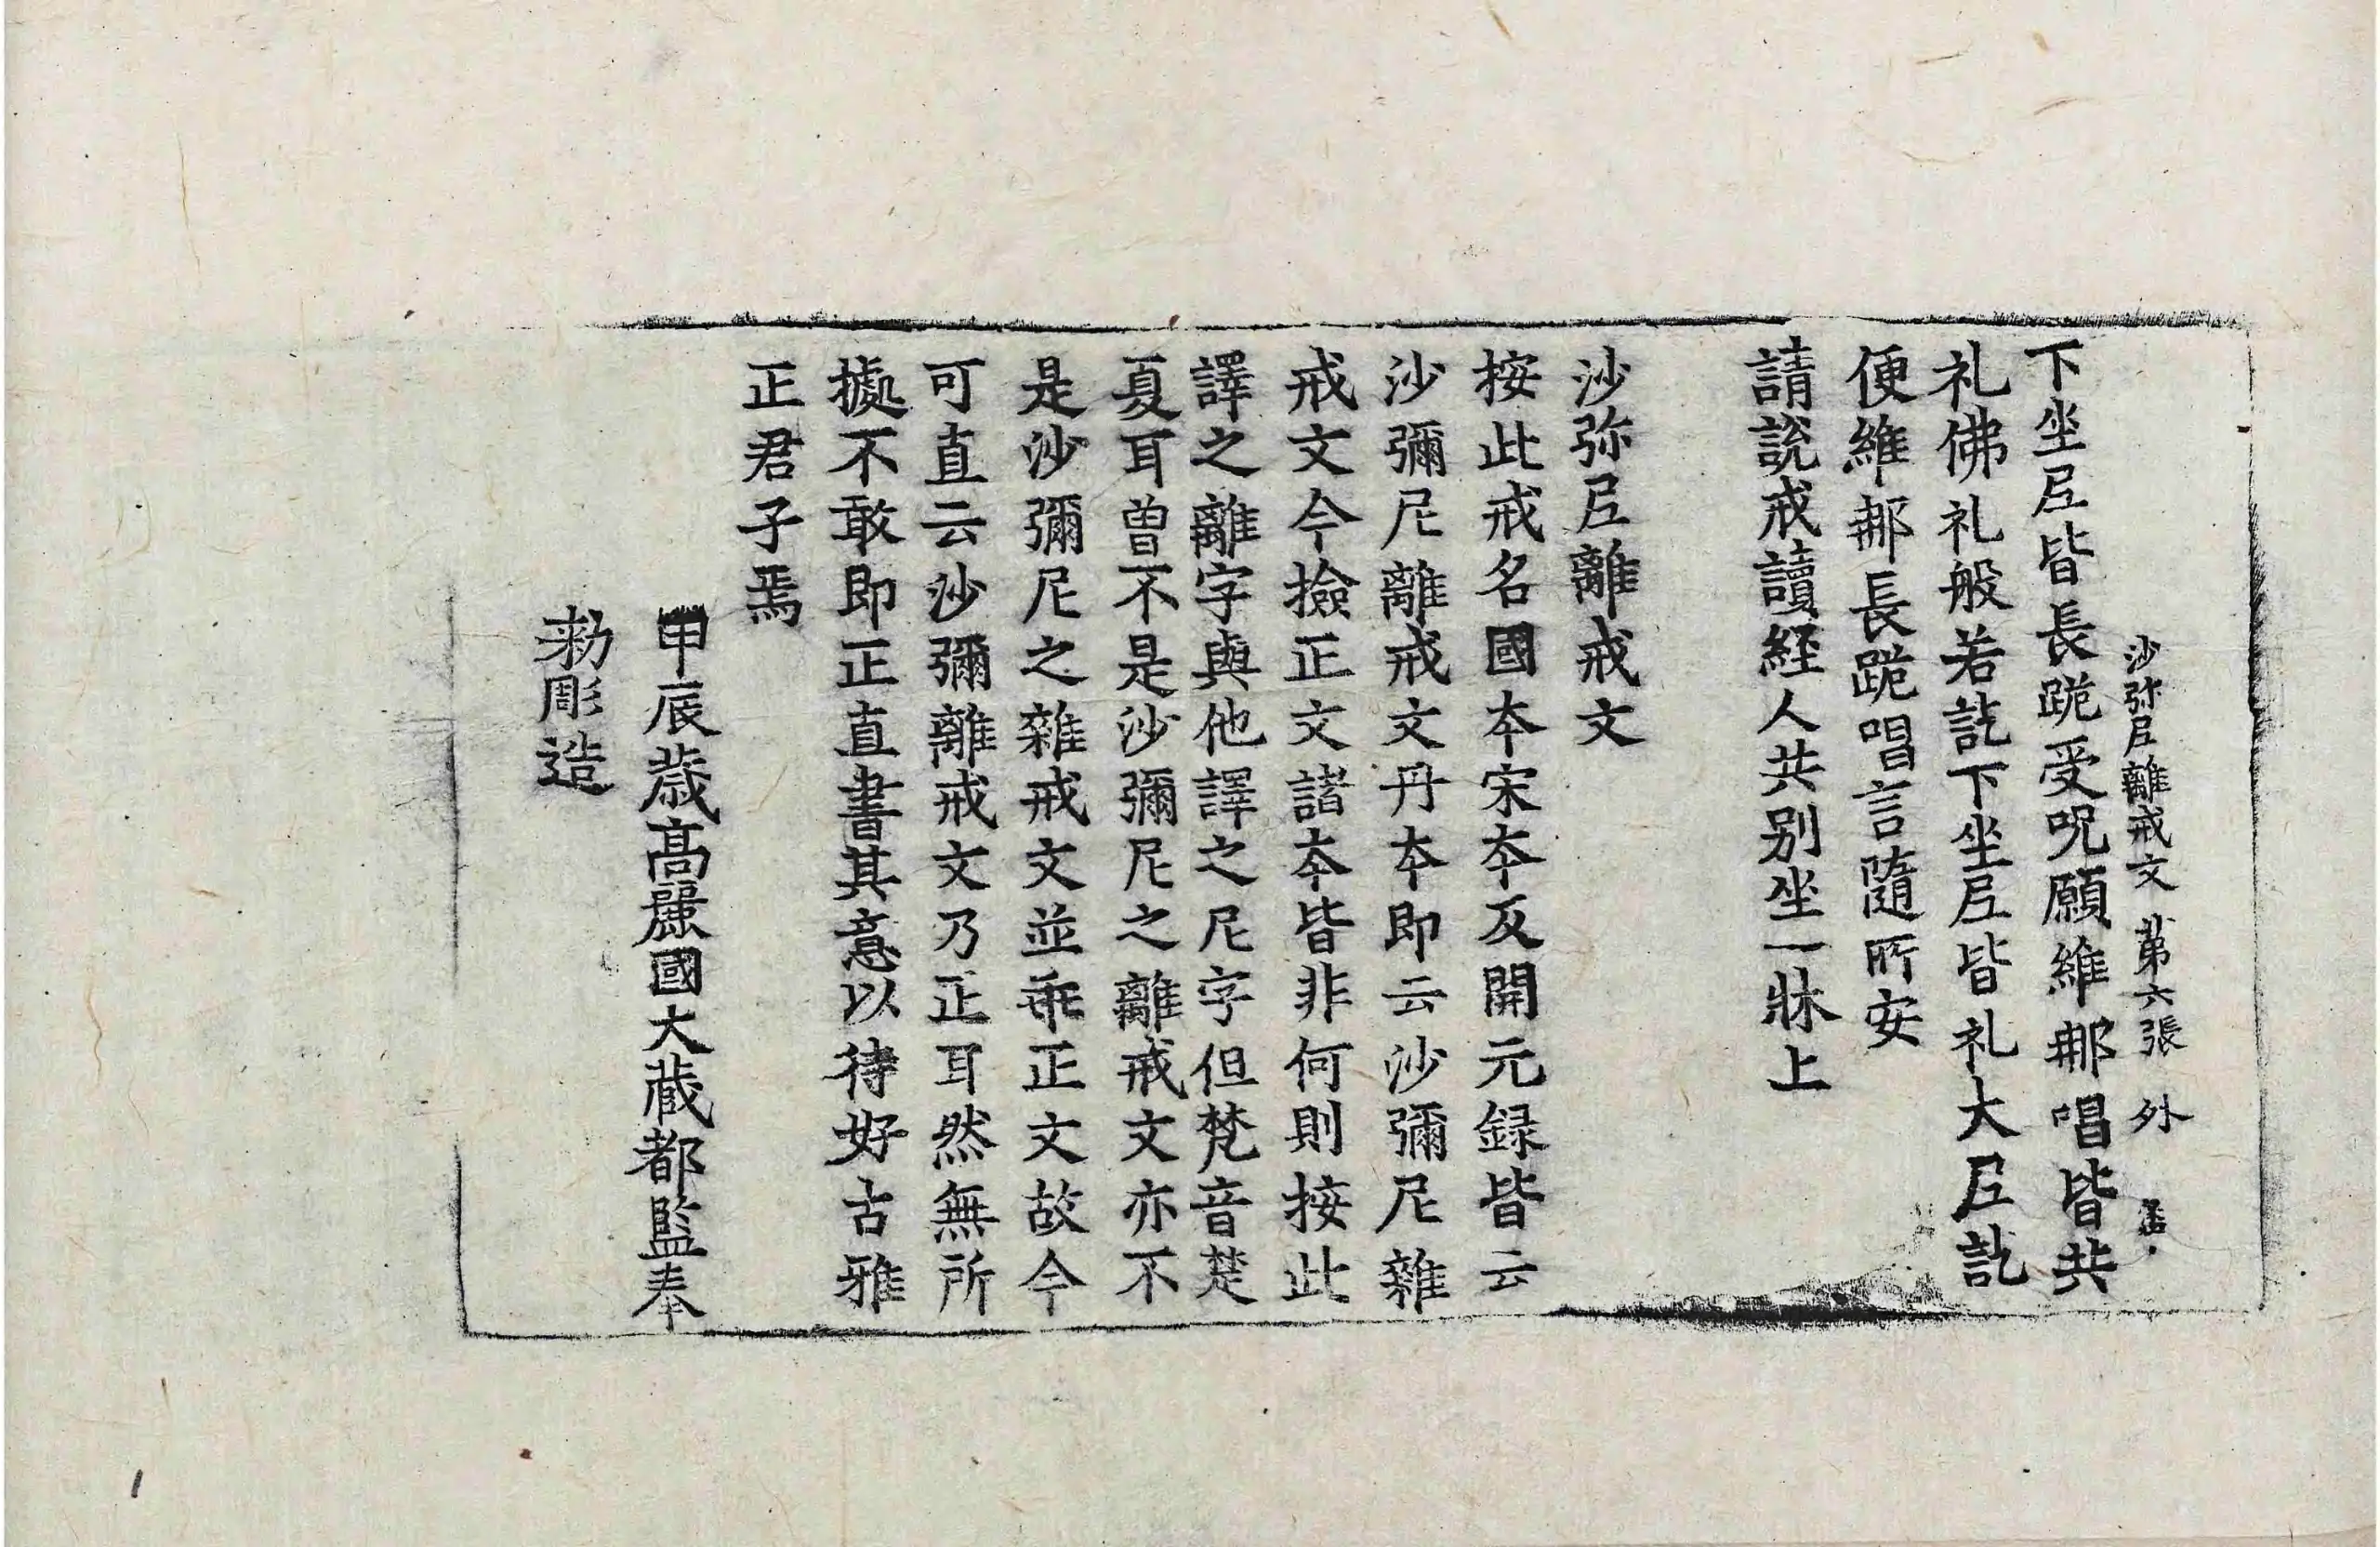 沙弥𡰱離戒文 苐六張 外
下坐𡰱皆長跪受呪願維𨚗唱皆共
礼佛礼般若訖下坐𡰱皆礼大𡰱訖
便維𨚗長跪唱言隨所安
請說戒讀経人共别坐一牀上
沙弥𡰱離戒文
按此戒名國夲宋夲及開元録皆云
沙彌尼離戒文丹夲即云沙彌尼雜
戒文今撿正文諸夲皆非何則按此
譯之離字與他譯之尼字但梵音楚
夏耳曽不是沙彌尼之離戒文亦不
是沙彌尼之雜戒文並乖正文故今
可直云沙彌離戒文乃正耳然無所
㨿不敢即正直書其意以待好古雅
正君子焉
甲辰歳高麗國大蔵都監奉
勑彫造